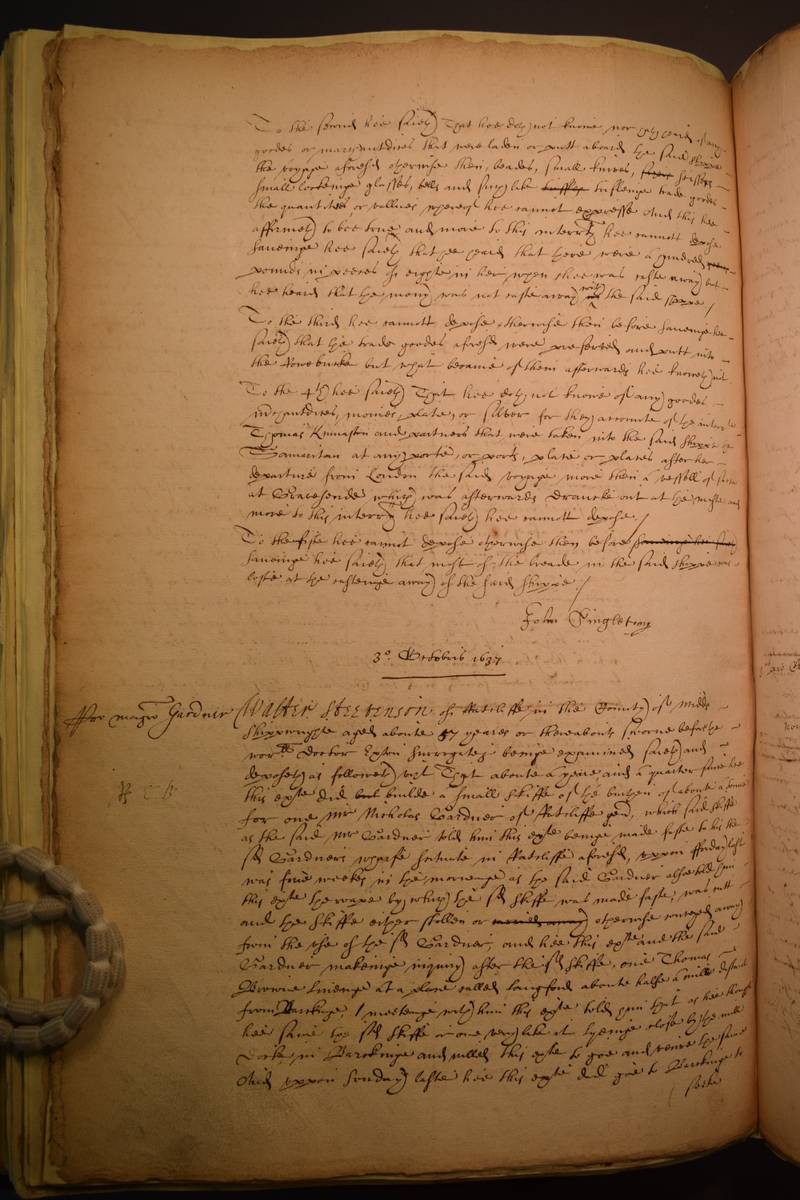 To the second hee saieth That hee doth not knowe nor
goodes or marchandizes that were laden or putt aboard the said shippe
the voyage aforesaid otherwise then, beades, small knives, sissers
small lookeinge glasses, bells and such like trifleinge trade goodes
the quantities or vallues whereof hee cannot expresse And this hee
affirmeth to bee true and more to this interry hee cannott depose
saveinge hee saieth that hee heard that there were a hundred
pounds in peeces of eight in her when shee was caste away but
hee heard that the mony was not caste away with the said shippe /
To the third hee cannott depose otherwise then before saveinge hee
saieth that the trade goodes aforesaid were preserved and putt into
the but what became of them afterwards hee knoweth not
To the 4th hee saieth That hee doth not knowe of any goodes
merchandizes, monies, plate, or silver for the accompte of the
Thomas Kinnaston and partners that were taken into the said shippe the
Samaritan at any porte, or ports, place or places after her
departure from London the said voyage more then a vessell of
at Gravesende which was afterwards drancke out at the maste and
more to this interry hee saieth hee cannott depose. /
To the fifte hee cannot depose otherwise then before saveinge hee saieth
saveinge hee saieth that most of the breade in the said shippe was
loste at the casteinge away of the said shippe /
John Singleton
3o. Octobris 1637
for magro Gardner Walter Steevenson of Ratcliffe in the County of Midds
Shippwright aged aboute 47 yeares or thereabouts sworne before the
worll Doctor Exton Surrogate beinge examined saieth and
deposeth as followeth vizt That aboute a yeare and a quarter since hee
this exte did builde a small skiffe of the burthen of aboute a tonne
for one Mr Nicholas Gardner of Ratcliffe gent, which said skiffe
as the said Mr Gardner told him this exte beinge made faste to his the
sd Gardners wharfe scituate in Ratcliffe aforesd, uppon
was five weekes in the morneinge as the said Gardner
this exte the roape by which the sd skiffe was made faste, was cutt
and the skiffe either stollen or carried away otherwise conveyed away
from the use of the sd Gardner, and hee this exte and the said
Gardner makeinge inquiry after the sd skiffe, one Thomas
Browne liveinge at a place called Langford aboute halfe a mile distant
from Barkinge, meeteinge with him this exte told him that as hee thought
hee sawe the sd skiffe or one very like it lyeinge close by the mill
Docke in Barckinge and willed this exte to goe and viewe the same
And uppon Sunday laste hee this exte did goe to Barckinge to